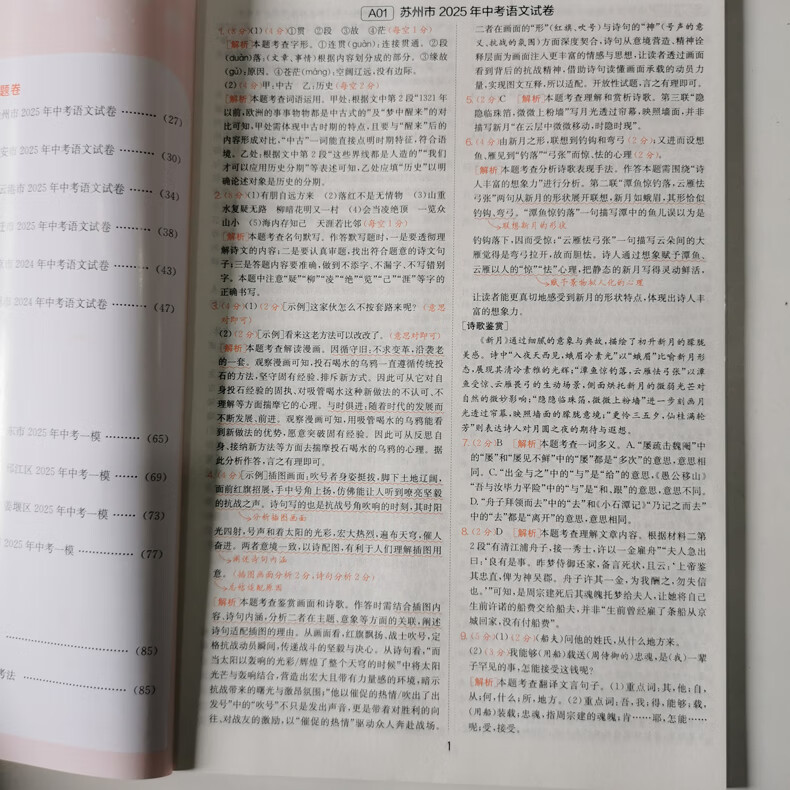 题卷
州市 2025 年中考语文试卷 (27)
安市 2025 年中考语文试卷 (30)
市 2025 年中考语文试卷 (34)
市 2025 年中考语文试卷 (38)
市 2024 年中考语文试卷 (43)
市 2024 年中考语文试卷 (47)
市 2025 年中考一模 (65)
江区 2025 年中考一模 (69)
姜堰区 2025 年中考一模 (73)
2025 年中考一模 (77)
(85)
考法 (85)
A01 苏州市 2025 年中考语文试卷
1.(8分)(1)(4分)①贯 ②段 ③故 ④茫(每空1分)
[解析]本题考查字形。①连贯(guàn):连接贯通。②段
(duàn)落:(文章、事情)根据内容划分成的部分。③缘故
(gù):原因。④苍茫(máng):空阔辽远,没有边际。
(2)(4分)甲:中古 乙:历史(每空2分)
[解析]本题考查词语运用。甲处:根据文中第2段“1321年
以前,欧洲的事事物物都是中古式的”及“梦中醒来”的对
比可知,甲处需体现中古时期的特点,且要与“醒来”后的
内容形成对比,“中古”一词能直接点明时期特征,符合语
境。乙处:根据文中第2段“这些界线都是人造的”“我们
才可以应用历史分期”等表述可知,乙处应填“历史”以明
确论述对象是历史的分期。
2.(8分)(1)有朋自远方来 (2)落红不是无情物 (3)山重
水复疑无路 柳暗花明又一村 (4)会当凌绝顶 一览众
山小 (5)海内存知己 天涯若比邻(每空1分)
[解析]本题考查名句默写。作答默写题时,一是要透彻理
解诗文的内容;二是要认真审题,找出符合题意的诗文句
子;三是答题内容要准确,做到不添字、不漏字、不写错别
字。本题中注意“疑”“柳”“凌”“绝”“览”“己”“涯”等字的
正确书写。
3.(4分)(1)(2分)[示例]这家伙怎么不按套路来呢?(意思
对即可)
(2)(2分)[示例]看来这老方法可以改改了。(意思对即可)
[解析]本题考查解读漫画。因循守旧:不求变革,沿袭老
的一套。观察漫画可知,投石喝水的乌鸦一直遵循传统投
石的方法,坚守固有经验、排斥新方式。因此可从它对自
身投石经验的固执、对吸管喝水这种新做法的不认可、不
理解等方面揣摩它的心理。与时俱进:随着时代的发展而
不断发展、前进。观察漫画可知,用吸管喝水的乌鸦能看
到新做法的优势,愿意突破固有经验。因此可从反思自
身、接纳新方法等方面去揣摩投石喝水的乌鸦的心理。据
此分析作答,言之有理即可。
4.(4分)[示例]插图画面:吹号者身姿挺拔,脚下土地辽阔,
面前红旗招展,手中号角上扬,仿佛能让人听到嘹亮坚毅
的抗战之声。诗句写的也是抗战号角吹响的时刻,其时阳
分析插图画面
光四射,号声和着太阳的光彩,宏大热烈,遍布天穹,催人
奋进。两者意境一致,以诗配图,有利于人们理解插图用
意。(插图画面分析2分,诗句分析2分)
[解析]本题考查鉴赏画面和诗歌。作答时需结合插图内
容、诗句内涵,分析二者在主题、意象等方面的关联,阐述
诗句适配插图的理由。从画面看,红旗飘扬、战士吹号,定
格抗战动员瞬间,传递战斗的坚毅与决心。从诗句看,“而
当太阳以轰响的光彩/辉煌了整个天穹的时候”中将太阳
光芒与轰响结合,营造出宏大且带有力量感的环境,暗示
抗战带来的曙光与激昂氛围;“他以催促的热情/吹出了出
发号”中的“吹号”不只是发出声音,更是带着对胜利的向
往、对战友的激励,以“催促的热情”驱动众人奔赴战场。
二者在画面的“形”(红旗、吹号)与诗句的“神”(号声的意
义、抗战的氛围)方面深度契合,诗句从意境营造、精神诠
释层面为画面注入更丰富的情感与思想,让读者透过画面
看到背后的抗战精神,借助诗句读懂画面承载的动员力
量,实现图文互释,所以适配。开放性试题,言之有理即可。
5.(2分)C [解析]本题考查理解和赏析诗歌。第三联“隐
隐临珠箔,微微上粉墙”写月光透过帘幕,映照墙面,并非
描写新月“在云层中微微移动,时隐时现”。
6.(4分)由新月之形,联想到钓钩和弯弓(2分);又进而设想
鱼、雁见到“钓落”“弓张”而惊、怯的心理(2分)。
[解析]本题考查分析诗歌表现手法。作答本题需围绕“诗
人丰富的想象力”进行分析。第二联“潭鱼惊钓落,云雁怯
弓张”两句从新月的形状展开联想,新月如蛾眉,其形恰似
钓钩、弯弓。“潭鱼惊钓落”一句描写潭中的鱼儿误以为是
联想新月的形状
钓钩落下,因而受惊;“云雁怯弓张”一句描写云朵间的大
雁觉得是弯弓拉开,故而胆怯。诗人通过想象赋予潭鱼、
云雁以人的“惊”“怯”心理,把静态的新月写得灵动鲜活,
赋予景物拟人化的心理
让读者能更真切地感受到新月的形状特点,体现出诗人丰
富的想象力。
[诗歌鉴赏]
《新月》通过细腻的意象与典故,描绘了初升新月的朦胧
美感。诗中“入夜天西见,蛾眉冷素光”以“蛾眉”比喻新月形
态,展现其清冷素雅的光辉;“潭鱼惊钓落,云雁怯弓张”以潭
鱼受惊、云雁畏弓的生动场景,侧面烘托新月的微弱光芒对
自然的微妙影响;“隐隐临珠箔,微微上粉墙”进一步刻画月
光透过帘幕,映照墙面的朦胧意境;“更怜三五夕,仙桂满轮
芳”则表达诗人对月圆之夜的期待与遐想。
7.(2分)B [解析]本题考查一词多义。A.“屡疏击魏阉”中
的“屡”和“屡见不鲜”中的“屡”都是“多次”的意思,意思相
同。C.“出金与之”中的“与”是“给”的意思,《愚公移山》
“吾与汝毕力平险”中的“与”是“和、跟”的意思,意思不同。
D.“舟子拜领而去”中的“去”和《小石潭记》“乃记之而去”
中的“去”都是“离开”的意思,意思相同。
8.(2分)D [解析]本题考查理解文章内容。根据材料二第
2段“有清江浦舟子,接一秀士,许以一金雇舟”“夫人急出
曰:‘良有是事。昨梦侍御还家,备言死状,且云:‘上帝鉴
其忠直,俾为神吴郡。舟子许其一金,为我酬之,勿失信
也。’”可知,是周宗建死后其魂魄托梦给夫人,让她将自己
生前许诺的船费交给船夫,并非“生前曾经雇了条船从京
城回家,没有付船费”。
9.(5分)(1)(2分)(船夫)问他的姓氏,从什么地方来。
(2)(3分)我能够(用船)载送(周侍御的)忠魂,是(我)一辈
子罕见的事,怎能接受这钱呢?
[解析]本题考查翻译文言句子。(1)重点词:其,他;自,
从;何,什么;所,地方。(2)重点词:吾,我;得,能够;载,
(用船)装载;忠魂,指周宗建的魂魄;肯……耶,怎能……
呢;受,接受。
1